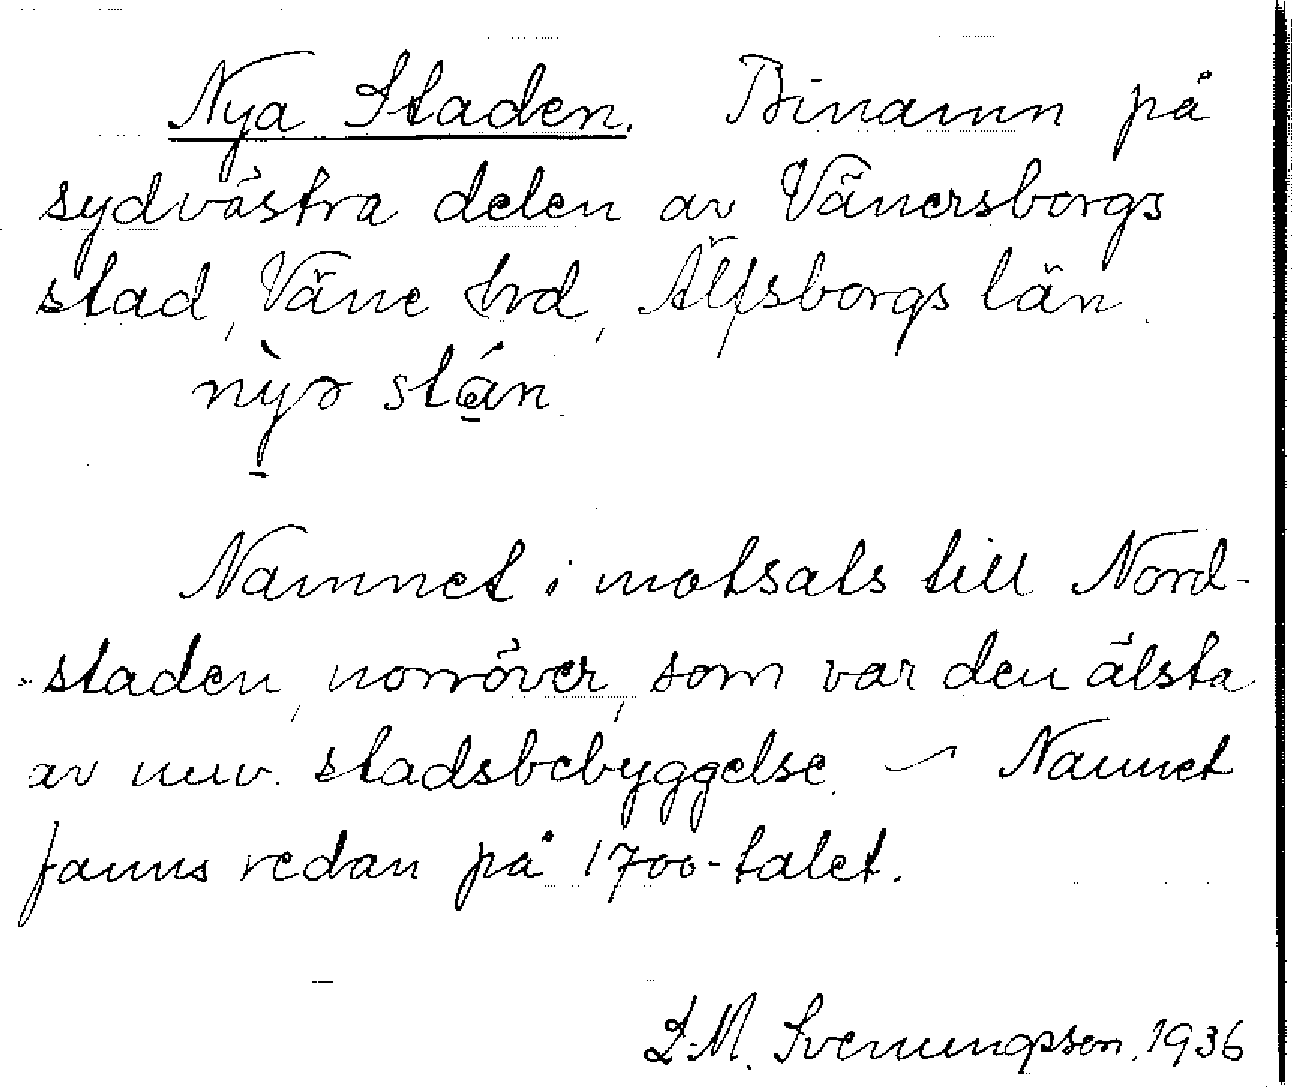 Nya Staden. Binamn på
sydvästra delen av Vänersborgs
stad, Väne hrd, Älfsborgs län.
nỳə stá̱n.
Namnet i motsats till Nord-
staden, norröver, som var den älsta
av nuv. stadsbebyggelse. – Namnet
fanns redan på 1700-talet.
S.M. Svenungsson. 1936